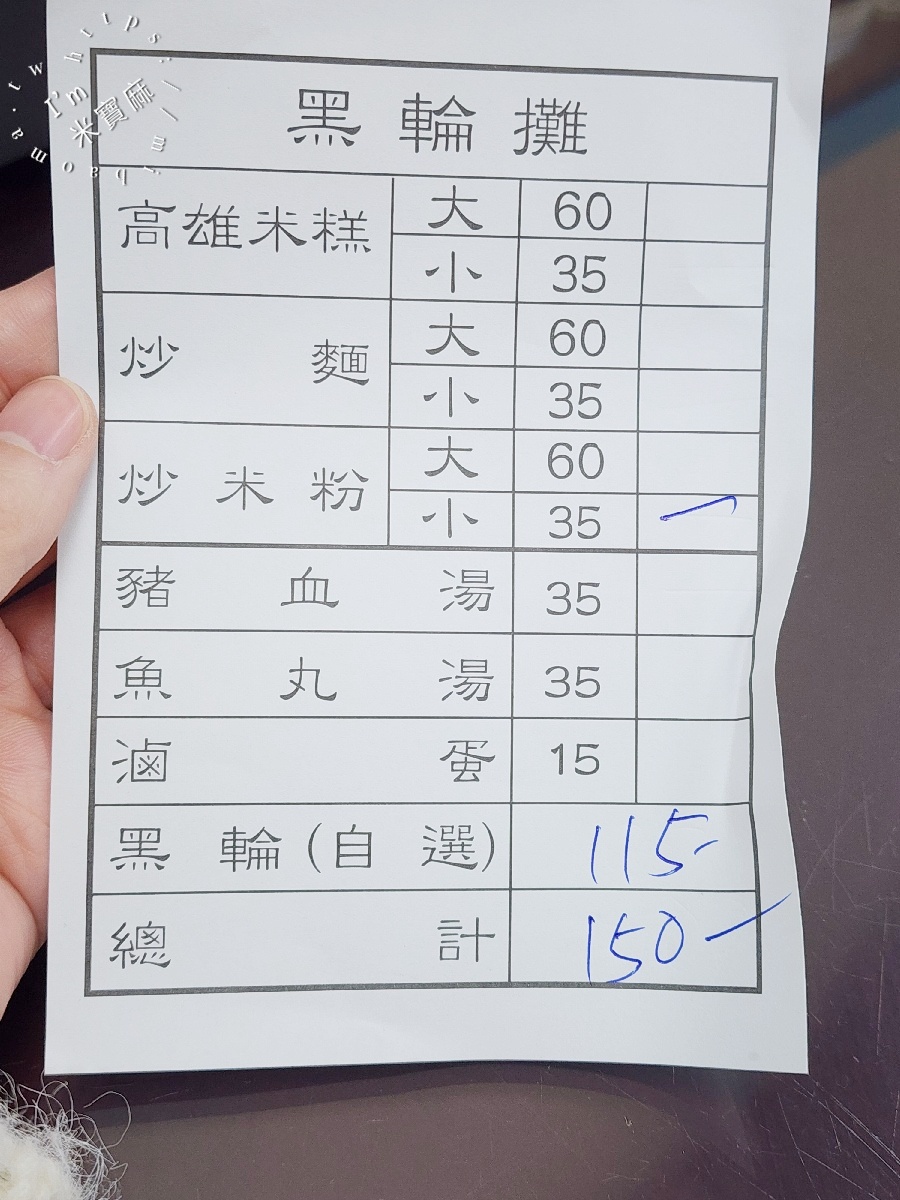 I'm 米寶麻
黑輪攤
高雄米糕 大 60
小 35
炒麵 大 60
小 35
炒米粉 大 60
小 35 一
豬血湯 35
魚丸湯 35
滷蛋 15
黑輪(自選) 115-
總計 150-